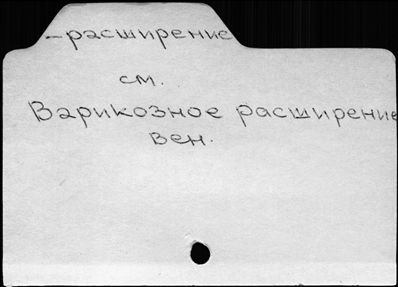 – расширение
см.
Варикозное расширение
вен.